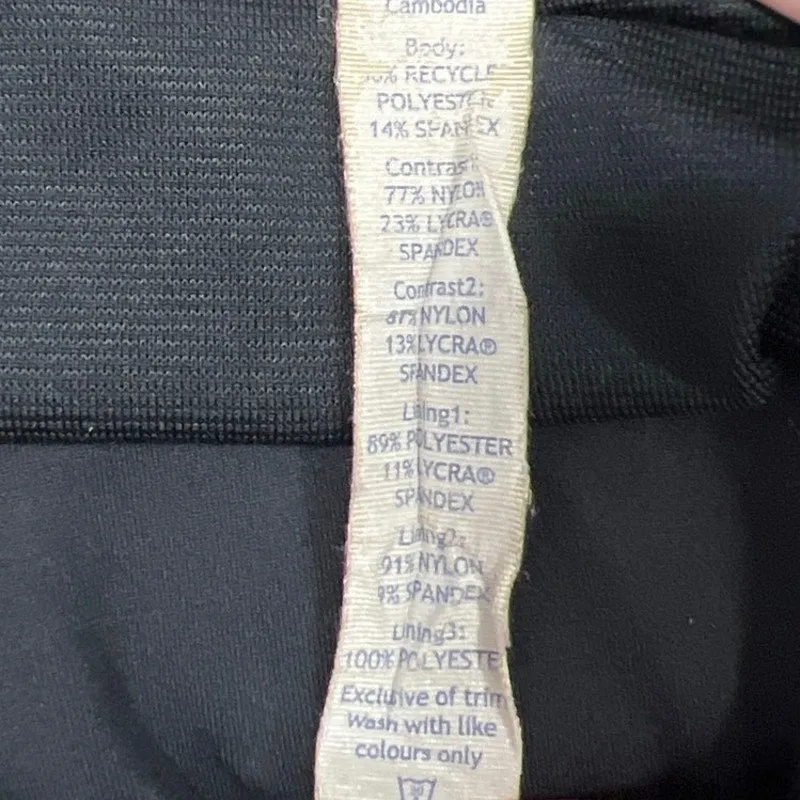 Cambodia
Body:
RECYCLE
POLYESTER
14% SPANDEX
Contrast1:
77% NYLON
23% LYCRA®
SPANDEX
Contrast2:
87% NYLON
13% LYCRA®
SPANDEX
Lining1:
89% POLYESTER
11% LYCRA®
SPANDEX
Lining2:
91% NYLON
9% SPANDEX
Lining3:
100% POLYESTE
Exclusive of trim
Wash with like
colours only
30